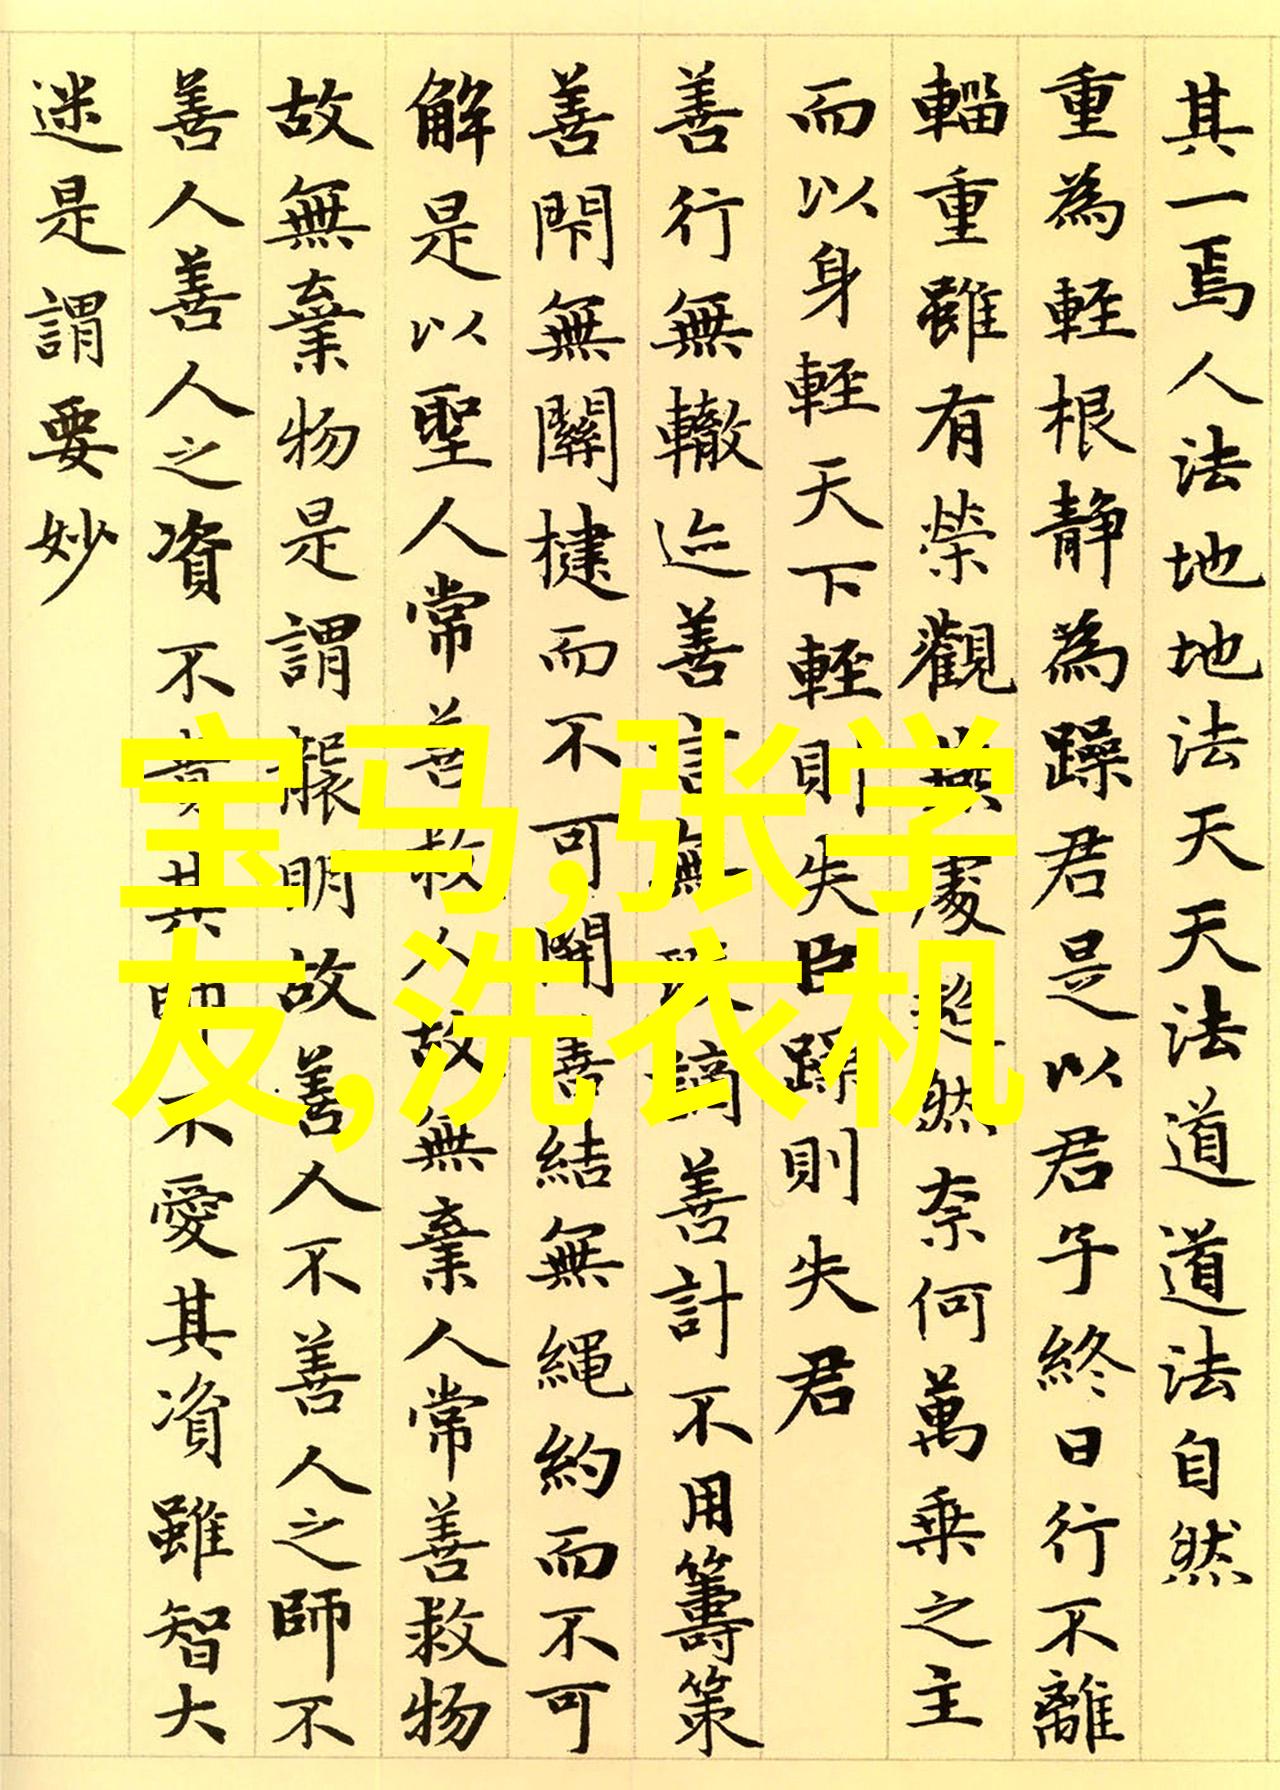 其一焉人法地地法天天法道道法自然
重為輕根靜為躁君是以君子終日行不離
輜重雖有榮觀燕處超然奈何萬乘之主
而以身輕天下輕則失臣躁則失君
善行無轍迹善言無瑕謫善計不用籌策
善閉無關楗而不可開善結無繩約而不可
解是以聖人常善救人故無棄人常善救物
故無棄物是謂襲明故善人不善人之師不
善人善人之資不貴其師不愛其資雖智大
迷是謂要妙
宝马,张学
友,洗衣机